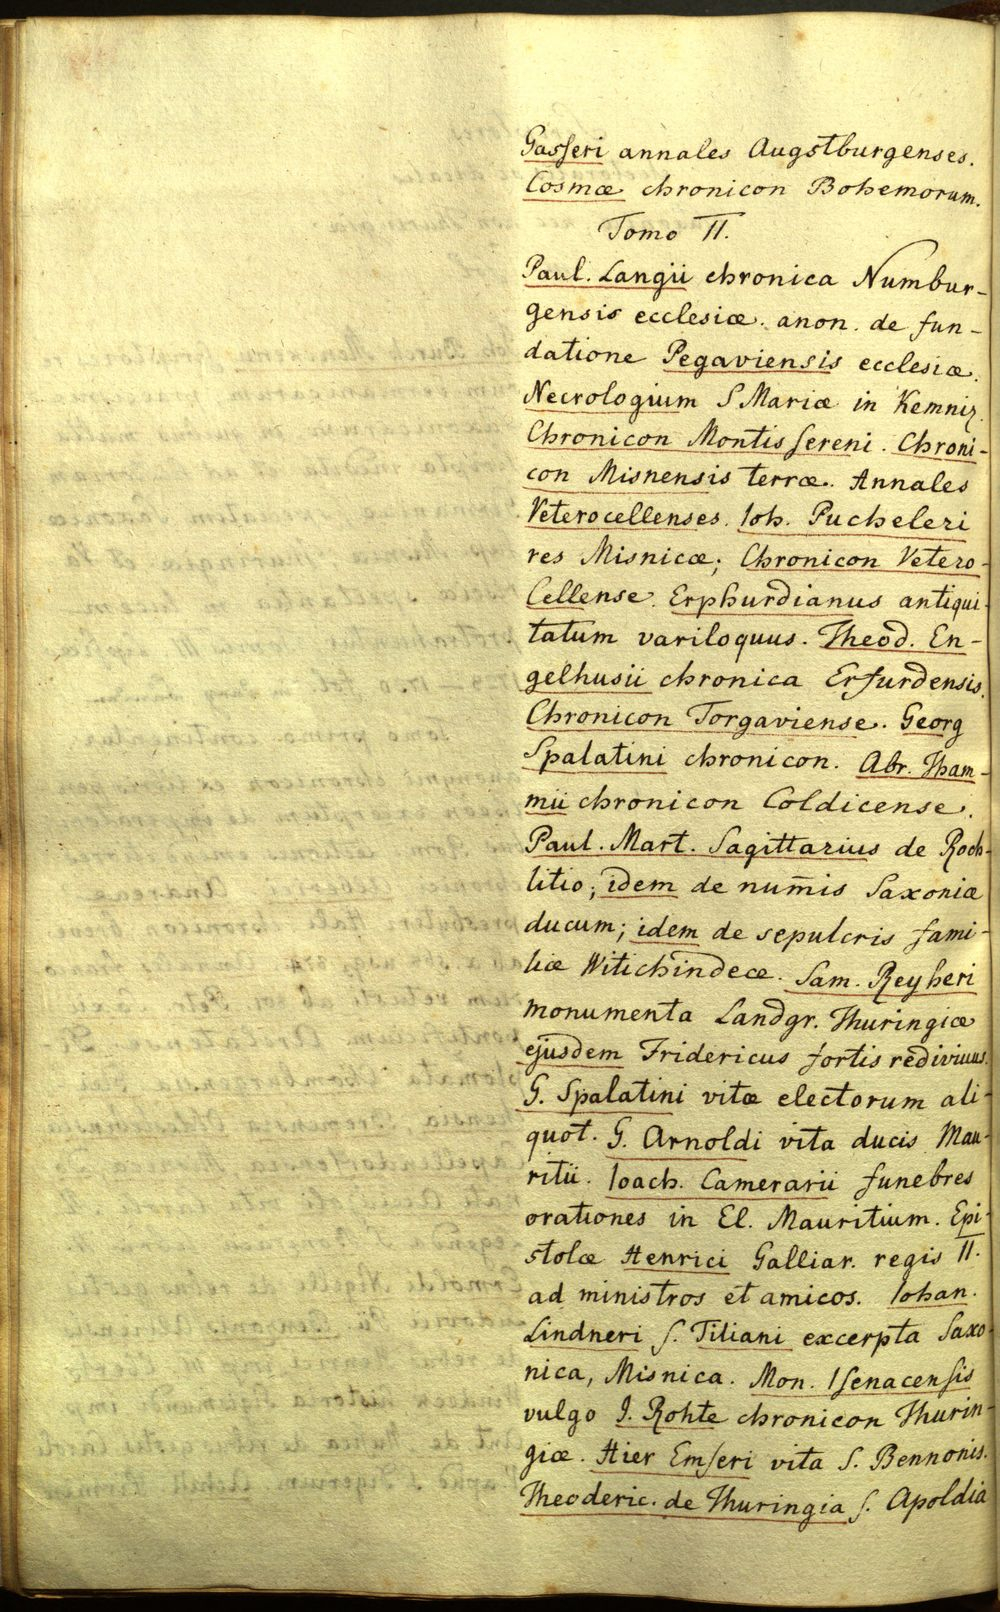 Gasseri annales Augstburgenses.
Cosmæ chronicon Bohemorum.
Tomo II.
Paul. Langii chronica Numbur-
gensis ecclesiæ. anon. de fun-
datione Pegaviensis ecclesiæ.
Necrologium S Mariæ in Kemniz.
Chronicon Montis sereni. Chroni-
con Misnensis terræ. Annales
Veterocellenses. Ioh. Pucheleri
res Misnicæ; Chronicon Vetero-
Cellense. Erphurdianus antiqui-
tatum variloquus. Theod. En-
gelhusii chronica Erfurdensis.
Chronicon Torgaviense. Georg
Spalatini chronicon. Abr. Tham-
mii chronicon Coldicense.
Paul. Mart. Sagittarius de Roch-
litio; idem de num̄is Saxoniæ
ducum; idem de sepulcris fami-
liæ Witichindeæ. Sam. Reyheri
monumenta Landgr. Thuringiæ
ejusdem Fridericus fortis redivivus.
G. Spalatini vitæ electorum ali-
quot. G. Arnoldi vita ducis Mau-
ritii. Ioach. Camerarii funebres
orationes in El. Mauritium. Epi-
stolæ Henrici Galliar. regis II.
ad ministros et amicos. Iohan.
Lindneri s. Tiliani excerpta Saxo-
nica, Misnica. Mon. Isenacensis
vulgo I. Rohte chronicon Thurin-
giæ. Hier Emseri vita S. Bennonis.
Theoderic. de Thuringia s. Apoldia